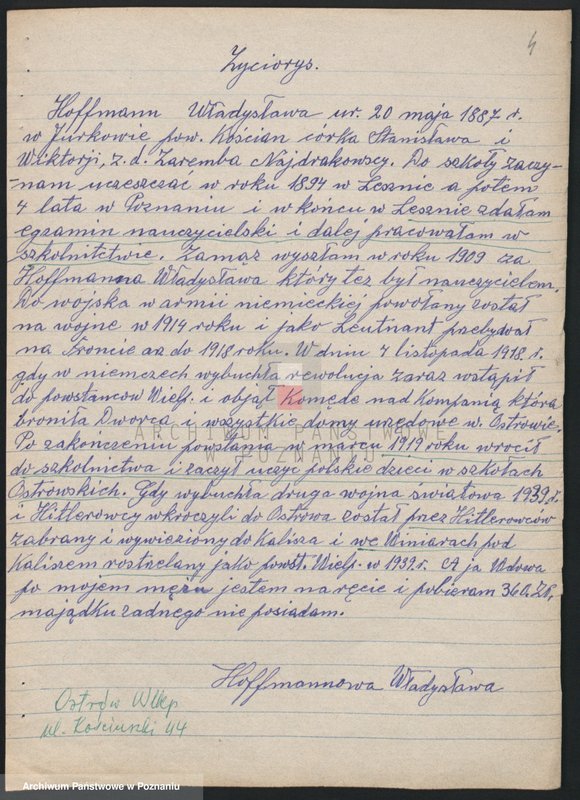 4
Życiorys.
Hoffmann Władysława ur. 20 maja 1887 r.
w Jurkowie pow. Kościan córka Stanisława i
Wiktorji, z. d. Zaremba Najdrakowscy. Do szkoły zaczy-
-nam uczeszczać w roku 1894 w Lesznie a potem
4 lata w Poznaniu i w końcu w Lesznie zdałam
egzamin nauczycielski i dalej pracowałam w
szkolnictwie. Zamąż wyszłam w roku 1909 za
Hoffmanna Władysława który też był nauczycielem.
Do wojska w armii niemieckiej powołany został
na wojnę w 1914 roku i jako Leutnant przebywał
na froncie aż do 1918 roku. W dniu 4 listopada 1918 r.
gdy w niemczech wybuchła rewolucja zaraz wstąpił
do powstańców Wielp. i objął Komęde nad Kompanią która
broniła Dworca i wszystkie domy urzędowe w. Ostrowie.
Po zakończeniu powstania w marcu 1919 roku wrócił
do szkolnictwa i zaczył uczyć polskie dzieci w szkołach
Ostrowskich. Gdy wybuchła druga wojna światowa 1939 r.
i Hitlerowcy wkroczyli do Ostrowa został przez Hitlerowców
zabrany i wywieziony do Kalisza i we Winiarach pod
Kaliszem rostrzelany jako powst. Wielp. w 1939 r. A ja Wdowa
po mojem mężu jestem na ręcie i pobieram 360. Zł,
majądku żadnego nie posiadam.
Hoffmannowa Władysława
Ostrów Wlkp
ul. Kościuszki 44
ARCHIWUM PAŃSTWOWE
W POZNANIU
Archiwum Państwowe w Poznaniu